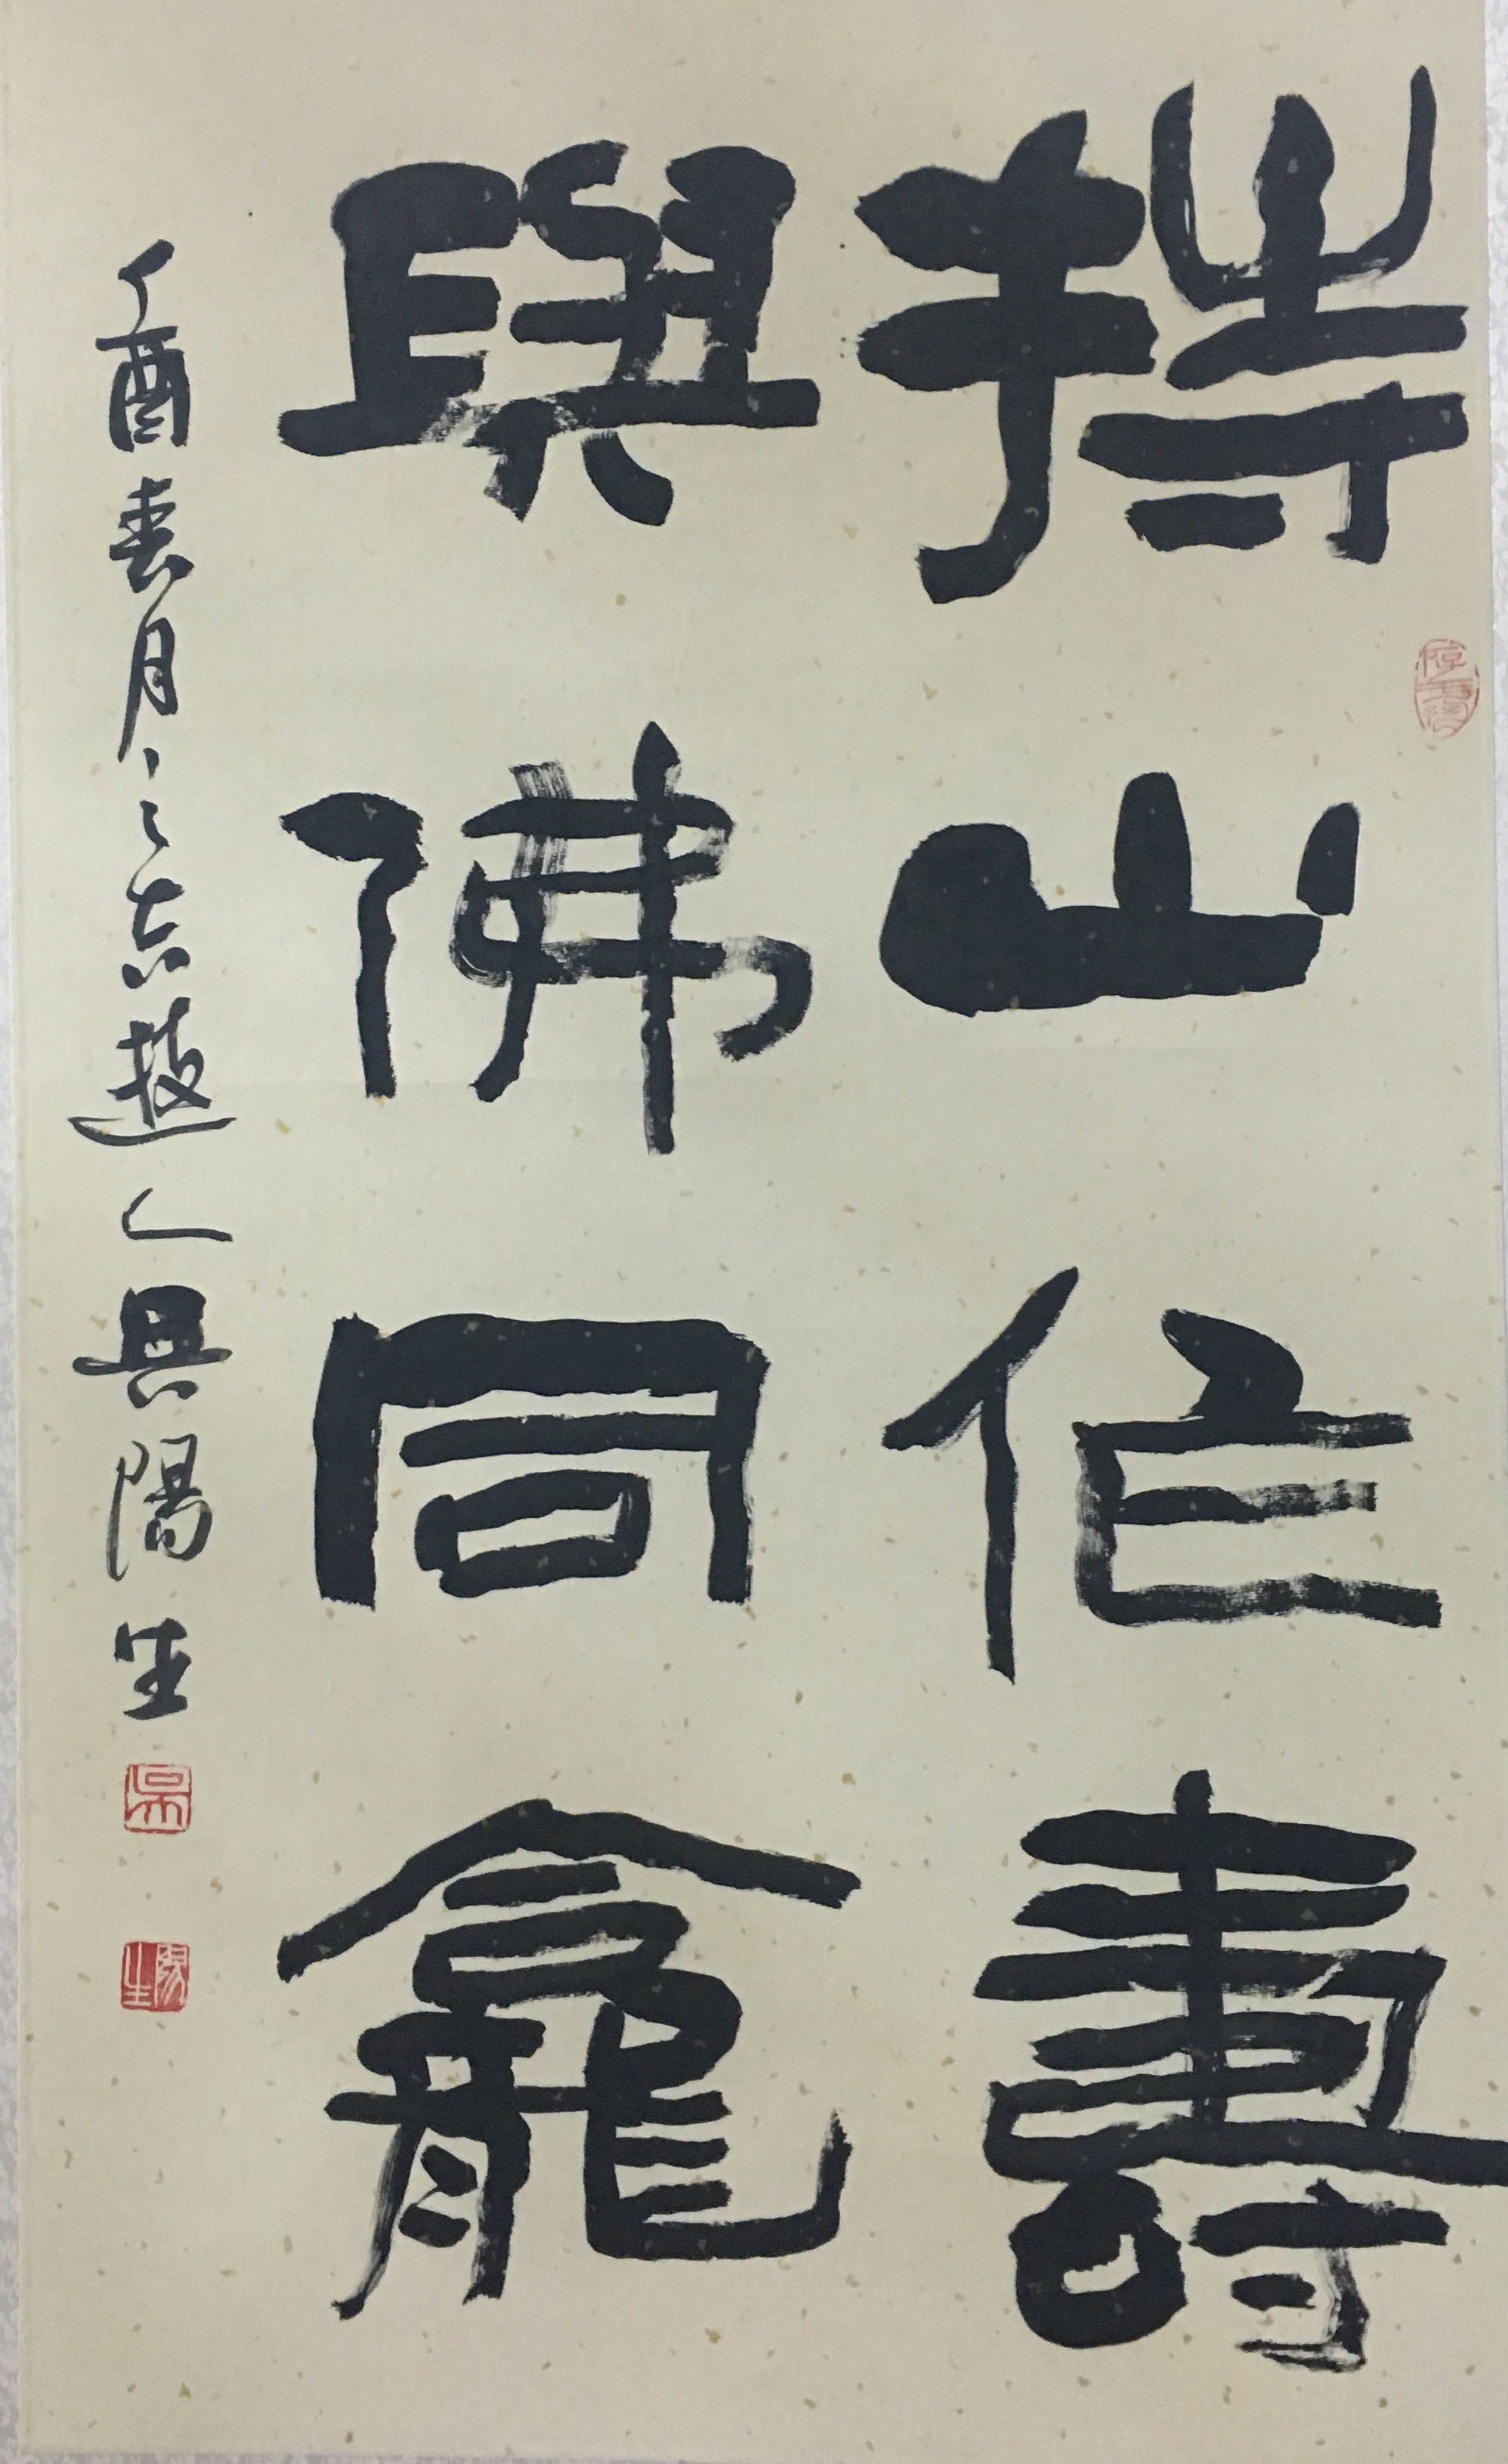 持山作壽
與佛同龕
丁酉春月之吉 吳陽生
吳
陽生